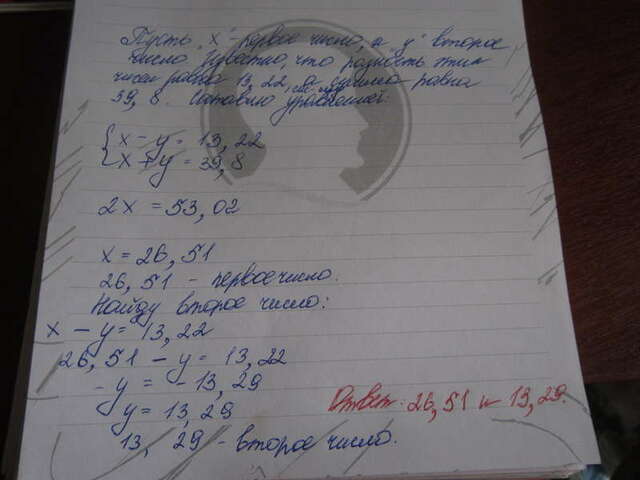 Пусть "x" - первое число, а "y" второе
число. Известно, что разность этих
чисел равна 13,22, а сумма равна
39,8. Составлю уравнение.
{ x - y = 13,22
x + y = 39,8
2x = 53,02
x = 26,51
26,51 - первое число.
Найду второе число:
x - y = 13,22
26,51 - y = 13,22
- y = - 13,29
y = 13,29
13,29 - второе число.
Ответ: 26,51 и 13,29.